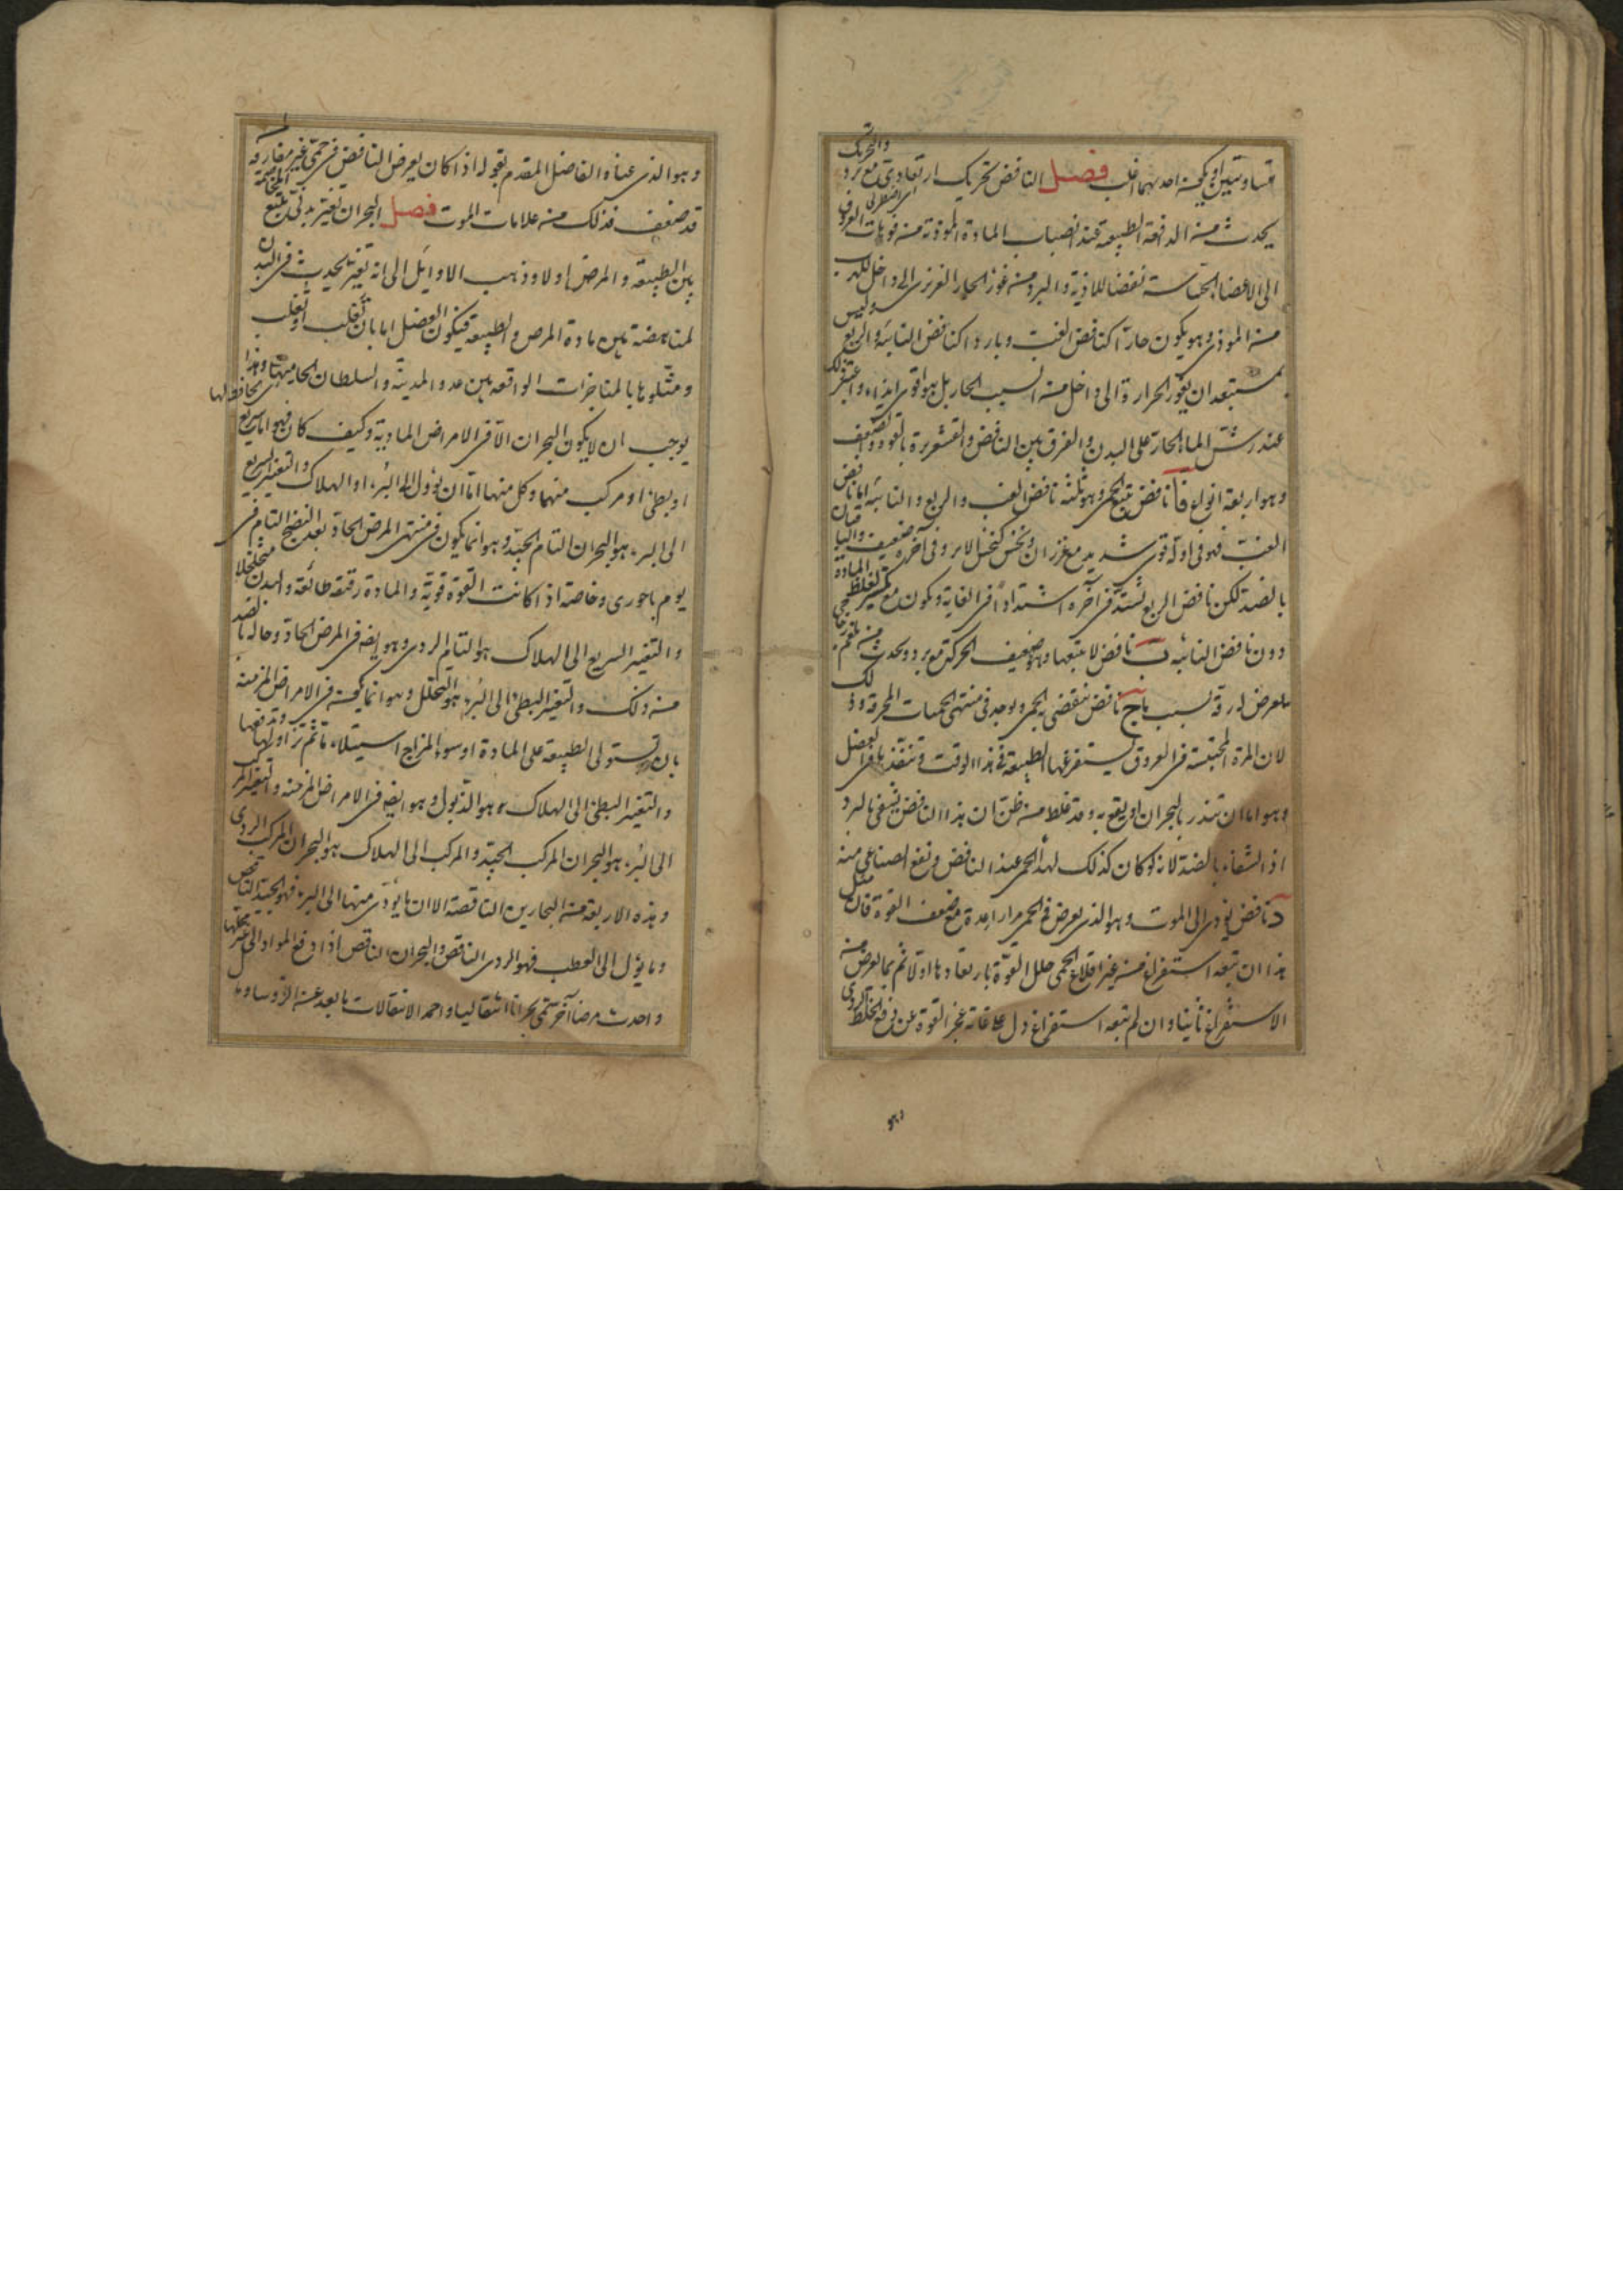 متساويتين او يكون احديهما اغلب فصل النافض تحريك ارتعادى مع برد والتحريك
يحدث من الدفعة الطبيعة عند انصباب الماده الموذية من فوهات العروق
الى الاعضا الحساسة نفضا للماذية والبرد من غور الحار الغريزى الى داخل للهرب
من الموذى وهو يكون حارا كنافض الغب وباردا كنافض النائبة والربع وليس
بمستبعد ان يغور الحرارة الى داخل من السبب الحار بل هو اقوى ايذاء واعتبر ذلك
عند رش الماء الحار على البدن والفرق بين النافض والقشعريرة بالقوة والضعف
وهو اربعة انواع فا نافض يتبع الحمى وهو ثلثه نافض الغب والربع والنائبه اما نافض
الغب فهو فى اوله قوى شديد مع غرزان ونخس كنخس الابر وفى آخره ضعيف والباقيان
بالضد لكن نافض الربع تشتد فى آخره اشتدادا فى الغاية ويكون مع تكسير لغلظ المادة
دون نافض النائبه ب نافض لا يتبعها وهو ضعيف الحركة مع برد ويحدث من بلغم
يعرض له رقة بسبب ما ج نافض ينقضى به الحمى ويوجد فى منتهى الحميات المحرقة وذلك
لان المرة المحتبسة فى العروق يستفرغها الطبيعة فى هذا الوقت وتنفذ بها فى العضل
وهو اما ان ينذر بالبحران او يقع به وقد غلط من ظن ان هذا النافض يشفى بالبرد
اذ الشفاء بالضد لانه لو كان كذلك لهدأ الحمى عند النافض ونفع الصناعى منه
د نافض يؤدى الى الموت وهو الذى يعرض فى الحمى مرارا عدة مع ضعف القوة فان مثل
هذا ان تبعه استفراغ من غير اقلاع الحمى حلل القوة بارتعادها اولا ثم بما يعرض من
الاستفراغ ثانيا وان لم تتبعه استفراغ دل على غاية عجز القوة عن دفع الخلط الردى
وهو الذى عناه الفاضل المقدم بقوله اذا كان يعرض النافض فى حمى غير مفارقة
قد ضعف فذلك من علامات الموت فصل البحران تغير بدنى يتبع
بين الطبيعة والمرض اولا وذهب الاوايل الى انه تغير يحدث فى البدن
لمناهضة بين مادة المرض والطبيعة فيكون الفصل اما بان تَغلب او تُغلب
ومثلوها بالمناجزات الواقعة بين عدو المدينة والسلطان الحامى لها وهذا
يوجب ان لا يكون البحران الا فى الامراض المادية وكيف كان فهو اما سريع
او بطئ او مركب منهما وكل منها اما ان يؤول الى البرء او الهلاك والتغير السريع
الى البرء هو البحران التام الجيد وهو انما يكون فى منتهى المرض الحاد بعد النضج التام فى
يوم باحورى وخاصة اذا كانت القوة قوية والمادة رقيقة طائعة والبدن متخلخلا
والتغير السريع الى الهلاك هو التام الردى وهو ايضه فى المرض الحاد وحاله بالضد
من ذلك والتغير البطئ الى البرء هو التحلل وهو انما يكون فى الامراض المزمنة
بان تستولى الطبيعة على المادة او سوء المزاج استيلاء ما ثم تزاولها وتدفعها
والتغير البطئ الى الهلاك هو الذبول وهو ايضه فى الامراض المزمنة والتغير المركب
الى البرء هو البحران المركب الجيد والمركب الى الهلاك هو البحران المركب الردى
وهذه الاربعة من البحارين الناقصة الا ان ما يؤدى منها الى البرء فهو الجيد الناقص
وما يؤل الى العطب فهو الردى الناقص والبحران الناقص اذا دفع المواد الى غير محلها
واحدث مرضا آخر سمى بحرانا انتقاليا واحمد الانتقالات ما بعد عن الرؤسا